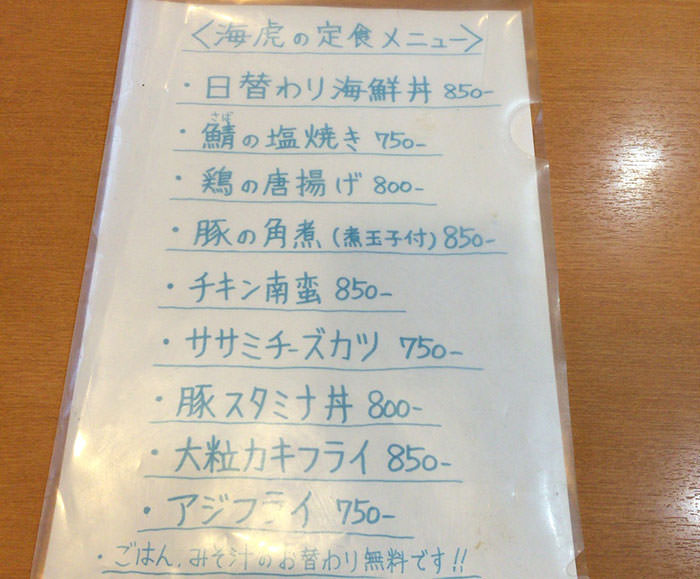 <海虎の定食メニュー>
・日替わり海鮮丼 850-
さば
・鯖の塩焼き 750-
・鶏の唐揚げ 800-
・豚の角煮(煮玉子付)850-
・チキン南蛮 850-
・ササミチーズカツ 750-
・豚スタミナ丼 800-
・大粒カキフライ 850-
・アジフライ 750-
・ごはん、みそ汁のお替わり無料です!!